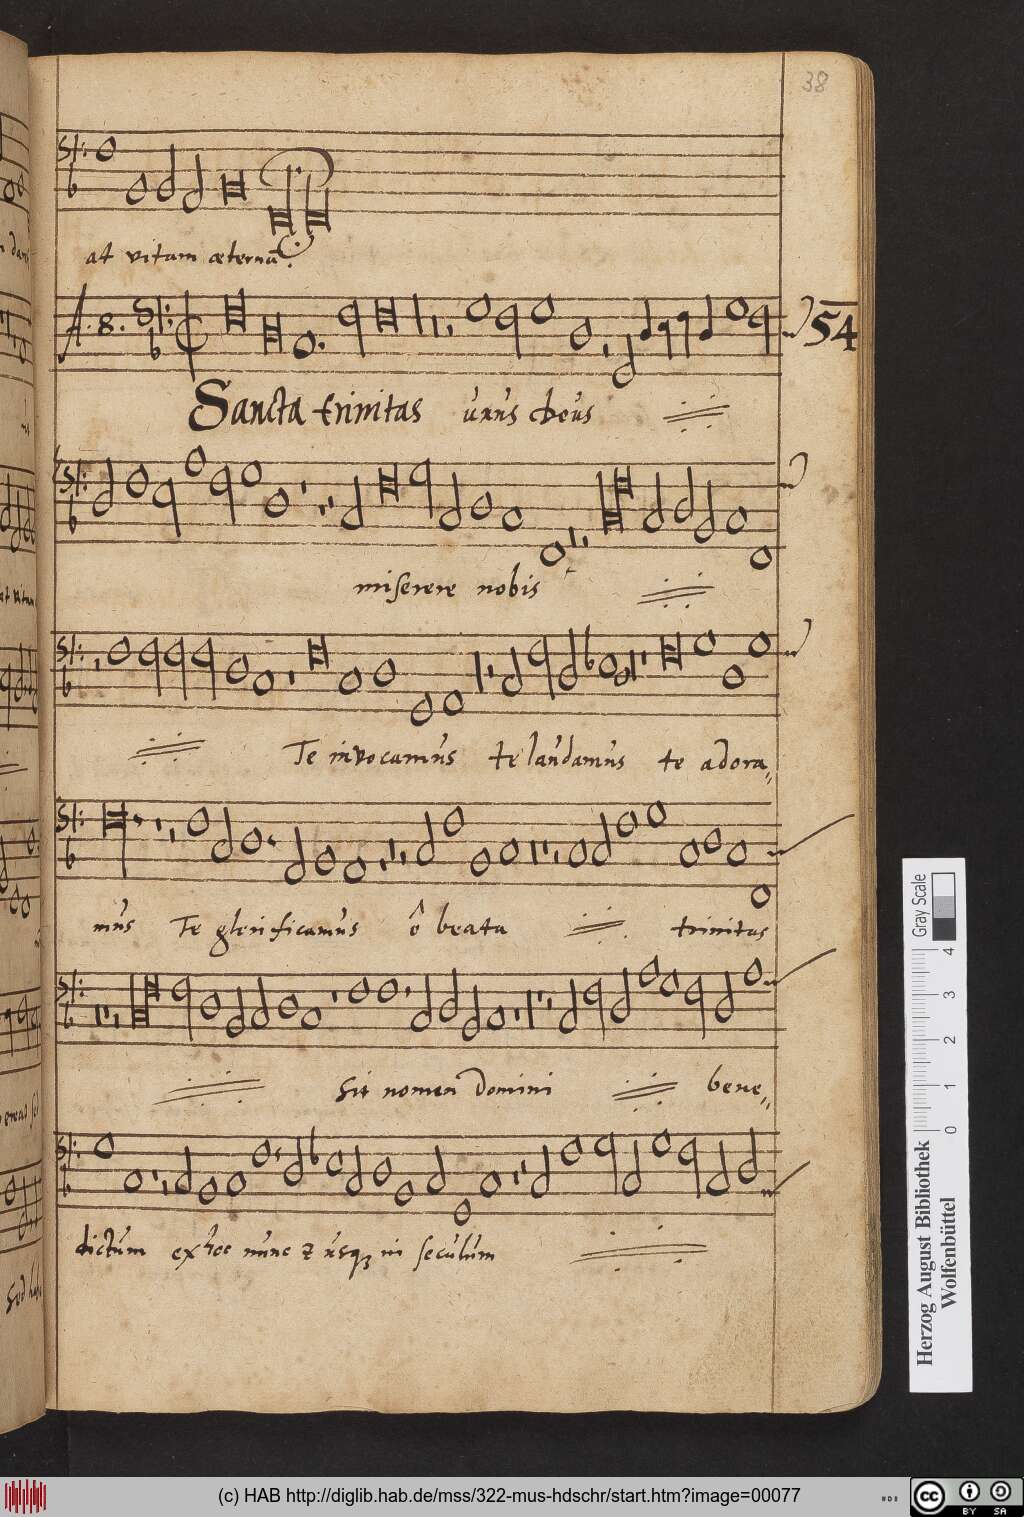 38
at vitam æternã
A. 8.
54
Sancta trinitas unus deus
miserere nobis
Te invocamus te laudamus te adora„
mus Te glorificamus ô beata trinitas
Sit nomen domini bene„
dictum ex hoc nunc et usq in seculum
Gray Scale
0 1 2 3 4
Herzog August Bibliothek
Wolfenbüttel
(c) HAB http://diglib.hab.de/mss/322-mus-hdschr/start.htm?image=00077
cc
BY SA